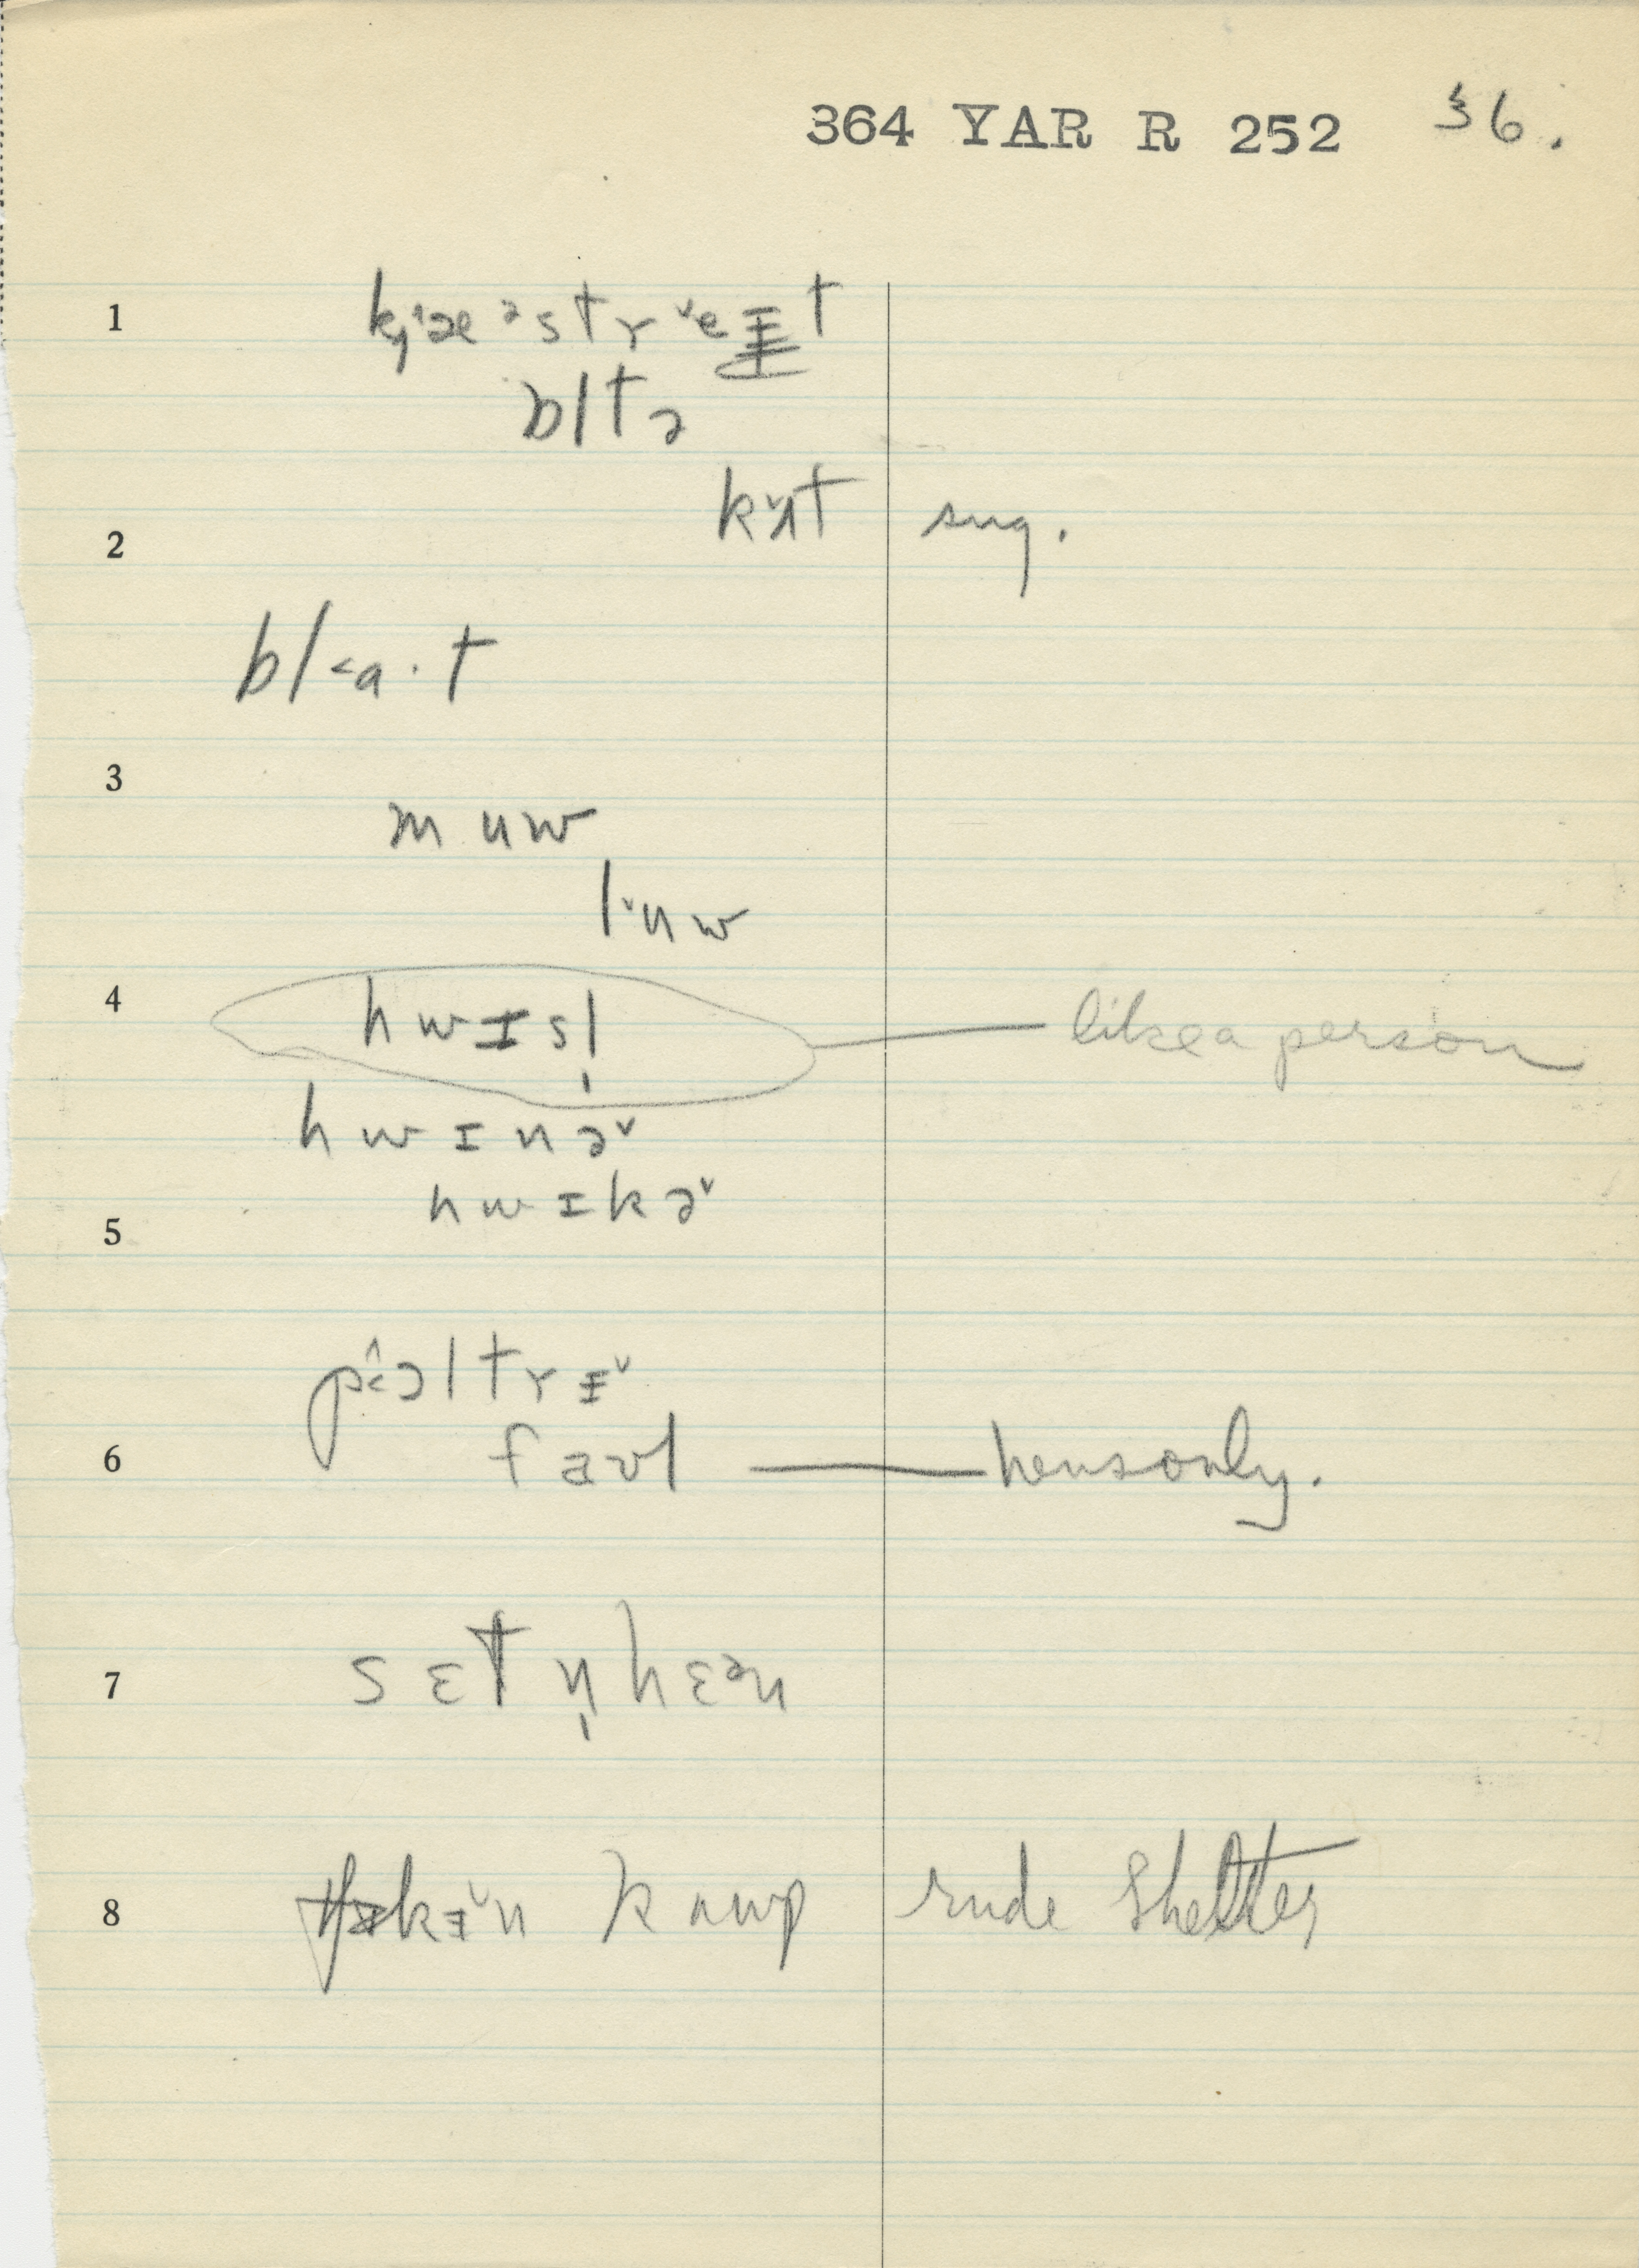 364 YAR R 252 36.
1 k̡ˆæᵊstrˇeɪt
bltə
2 kˇʌt sug.
bl<a·t
3
muw
lˇuw
4 hwɪsl̩ like a person
hwɪnəˇ
5 hwɪkəˇ
pɔ<ˆltrɪˇ
6 faʊl hens only.
7 sɛtn̩ hɛən
8 kɪˇn kuwp rude shelter